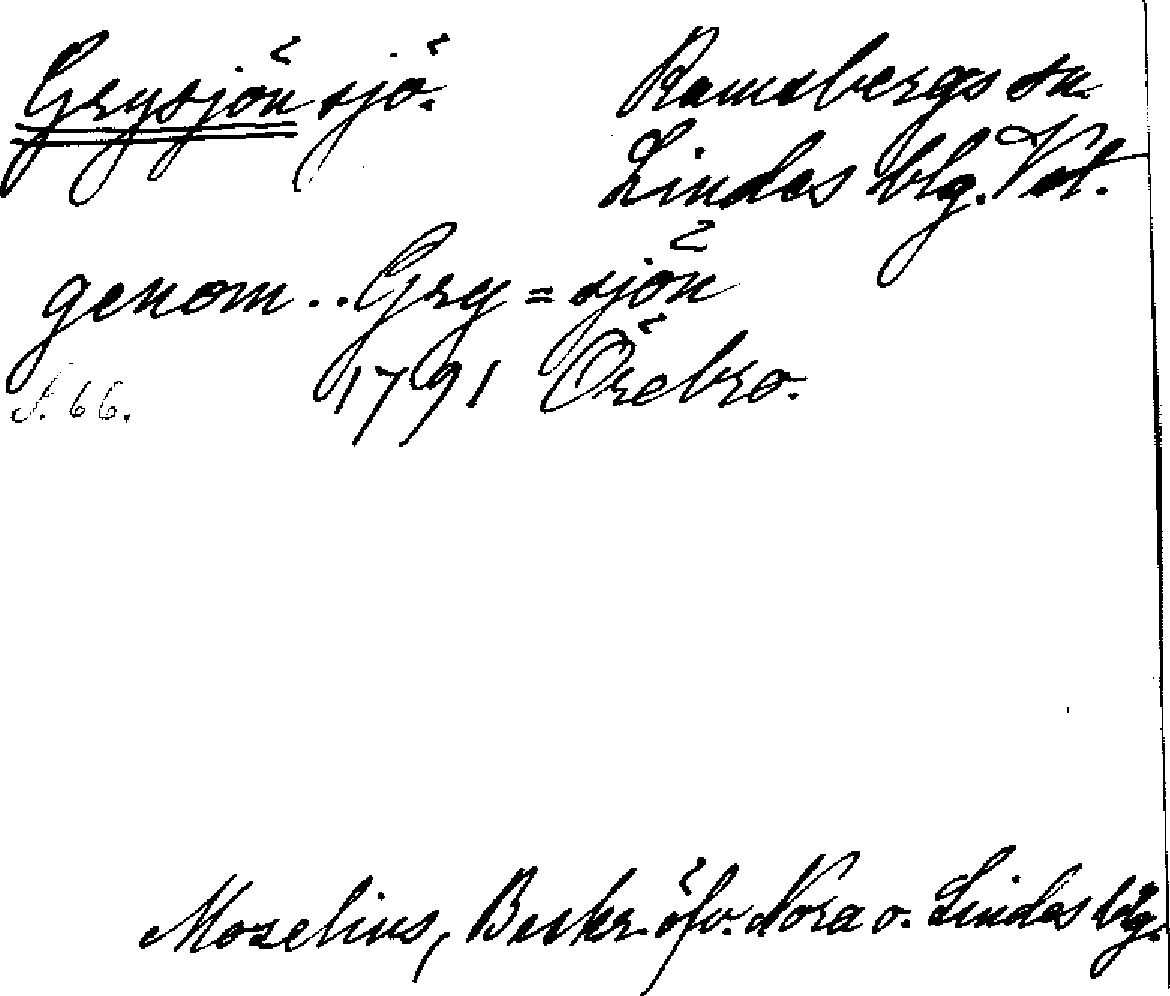 Grysjön sjö.
Ramsbergs sn.
Lindes blg. Vstm.
genom .. Gry=sjön
S. 66. 1791 Örebro.
Mozelius, Beskr. öfv. Nora o. Lindes blg.